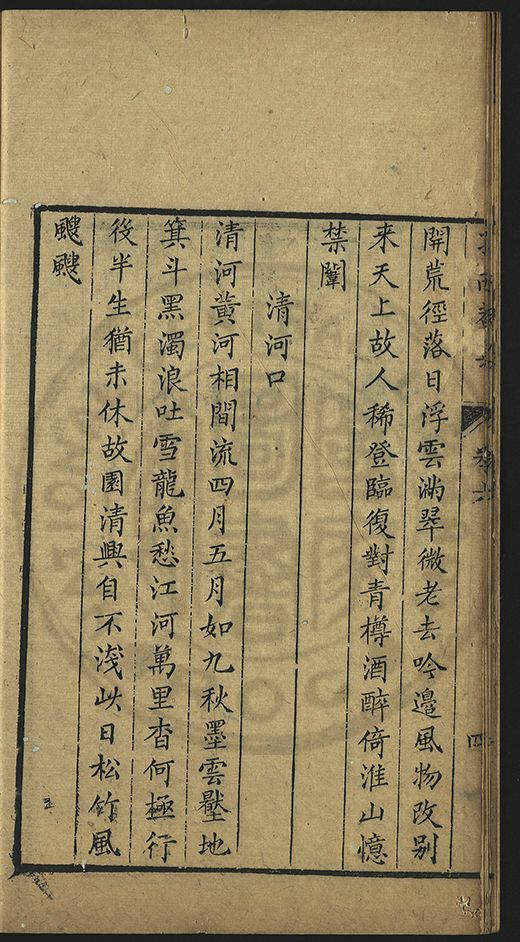 開荒徑落日浮雲滿翠微老去吟邊風物改別
来天上故人稀登臨復對青樽酒醉倚淮山憶
禁闈
清河口
清河黃河相間流四月五月如九秋墨雲壓地
箕斗黑濁浪吐雪龍魚愁江河萬里杳何極行
後半生猶未休故園清興自不淺此日松竹風
颼颼